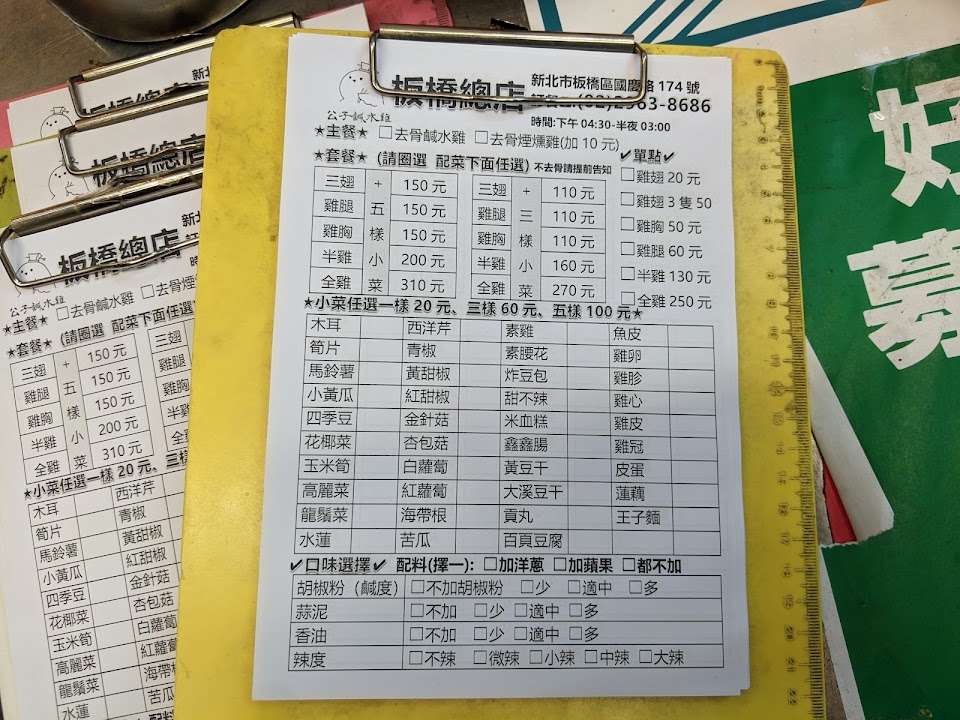 板橋總店 新北市板橋區國慶路 174 號
63-8686
公子鹹水雞 時間:下午 04:30-半夜 03:00
★主餐★ □去骨鹹水雞 □去骨煙燻雞(加 10 元)
★套餐★ (請圈選 配菜下面任選) 不去骨請提前告知 ✔單點✔
三翅 + 150 元 三翅 + 110 元 □雞翅 20 元
雞腿 五 150 元 雞腿 三 110 元 □雞翅 3 隻 50
雞胸 樣 150 元 雞胸 樣 110 元 □雞胸 50 元
半雞 小 200 元 半雞 小 160 元 □雞腿 60 元
全雞 菜 310 元 全雞 菜 270 元 □半雞 130 元
□全雞 250 元
★小菜任選一樣 20 元、三樣 60 元、五樣 100 元★
木耳 西洋芹 素雞 魚皮
筍片 青椒 素腰花 雞卵
馬鈴薯 黃甜椒 炸豆包 雞胗
小黃瓜 紅甜椒 甜不辣 雞心
四季豆 金針菇 米血糕 雞皮
花椰菜 杏包菇 鑫鑫腸 雞冠
玉米筍 白蘿蔔 黃豆干 皮蛋
高麗菜 紅蘿蔔 大溪豆干 蓮藕
龍鬚菜 海帶根 貢丸 王子麵
水蓮 苦瓜 百頁豆腐
✔口味選擇✔ 配料(擇一): □加洋蔥 □加蘋果 □都不加
胡椒粉（鹹度） □不加胡椒粉 □少 □適中 □多
蒜泥 □不加 □少 □適中 □多
香油 □不加 □少 □適中 □多
辣度 □不辣 □微辣 □小辣 □中辣 □大辣
新北
板橋總
板橋總店
新北
板橋總店 新北
公子鹹水雞 時
★主餐★ □去骨鹹水雞 □去骨煙
★套餐★ (請圈選 配菜下面任選
三翅 + 150 元 三翅
雞腿 五 150 元 雞腿
雞胸 樣 150 元 雞胸
半雞 小 200 元 半雞
全雞 菜 310 元 全雞
★小菜任選一樣 20 元、三樣
木耳 西洋芹
筍片 青椒
馬鈴薯 黃甜椒
小黃瓜 紅甜椒
四季豆 金針菇
花椰菜 杏包菇
玉米筍 白蘿蔔
高麗菜 紅蘿蔔
龍鬚菜 海帶
水蓮 苦瓜
好
募